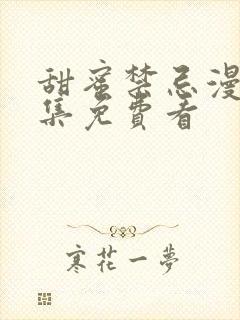 甜蜜禁忌漫
集免費看
寒花一夢